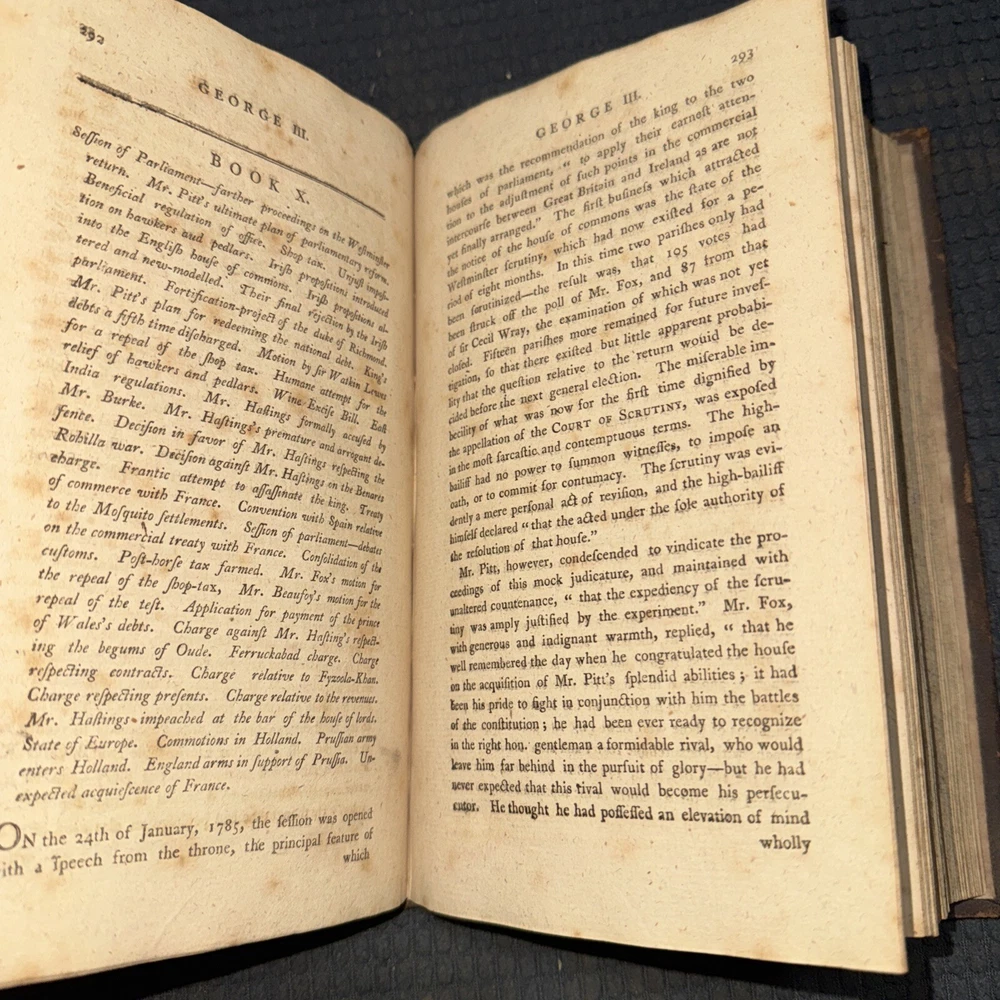 292
GEORGE III.
BOOK X.
Seſſion of Parliament—farther proceedings on the Weſtminſter
return. Mr. Pitt's ultimate plan of parliamentary reform.
Beneficial regulation of office. Shop tax. Unjuſt impoſi-
tion on hawkers and pedlars. Iriſh propoſitions introduced
into the Engliſh houſe of commons. Iriſh propoſitions al-
tered and new-modelled. Their final rejection by the Iriſh
parliament. Fortification-project of the duke of Richmond.
Mr. Pitt's plan for redeeming the national debt. King's
debts a fifth time diſcharged. Motion by ſir Watkin Lewes
for a repeal of the ſhop tax. Humane attempt for the
relief of hawkers and pedlars. Wine Exciſe Bill. Eaſt
India regulations. Mr. Haſtings formally accuſed by
Mr. Burke. Mr. Haſtings's premature and arrogant de-
fence. Deciſion in favor of Mr. Haſtings reſpecting the
Rohilla war. Deciſion againſt Mr. Haſtings on the Benares
charge. Frantic attempt to aſſaſſinate the king. Treaty
of commerce with France. Convention with Spain relative
to the Moſquito ſettlements. Seſſion of parliament—debates
on the commercial treaty with France. Conſolidation of the
cuſtoms. Poſt-horſe tax farmed. Mr. Fox's motion for
the repeal of the ſhop-tax, Mr. Beaufoy's motion for the
repeal of the teſt. Application for payment of the prince
of Wales's debts. Charge againſt Mr. Haſting's reſpect-
ing the begums of Oude. Ferruckabad charge. Charge
reſpecting contracts. Charge relative to Fyzoola-Khan.
Charge reſpecting preſents. Charge relative to the revenues.
Mr. Haſtings impeached at the bar of the houſe of lords.
State of Europe. Commotions in Holland. Pruſſian army
enters Holland. England arms in ſupport of Pruſſia. Un-
expected acquieſcence of France.
ON the 24th of January, 1785, the ſeſſion was opened
with a ſpeech from the throne, the principal feature of
which
293
GEORGE III.
which was the recommendation of the king to the two
houſes of parliament, “ to apply their earneſt atten-
tion to the adjuſtment of ſuch points in the commercial
intercourſe between Great Britain and Ireland as are not
yet finally arranged.” The firſt buſineſs which attracted
the notice of the houſe of commons was the ſtate of the
Weſtminſter ſcrutiny, which had now exiſted for a pe-
riod of eight months. In this time two pariſhes only had
been ſcrutinized—the reſult was, that 105 votes had
been ſtruck off the poll of Mr. Fox, and 87 from that
of ſir Cecil Wray, the examination of which was not yet
cloſed. Fifteen pariſhes more remained for future inveſ-
tigation, ſo that there exiſted but little apparent probabi-
lity that the queſtion relative to the return would be de-
cided before the next general election. The miſerable im-
becility of what was now for the firſt time dignified by
the appellation of the COURT OF SCRUTINY, was expoſed
in the moſt ſarcaſtic and contemptuous terms. The high-
bailiff had no power to ſummon witneſſes, to impoſe an
oath, or to commit for contumacy. The ſcrutiny was evi-
dently a mere perſonal act of reviſion, and the high-bailiff
himſelf declared “ that the acted under the ſole authority of
the reſolution of that houſe.”
Mr. Pitt, however, condeſcended to vindicate the pro-
ceedings of this mock judicature, and maintained with
unaltered countenance, “ that the expediency of the ſcru-
tiny was amply juſtified by the experiment.” Mr. Fox,
with generous and indignant warmth, replied, “ that he
well remembered the day when he congratulated the houſe
on the acquiſition of Mr. Pitt's ſplendid abilities ; it had
been his pride to fight in conjunction with him the battles
of the conſtitution ; he had been ever ready to recognize
in the right hon. gentleman a formidable rival, who would
leave him far behind in the purſuit of glory—but he had
never expected that this rival would become his perſecu-
cutor. He thought he had poſſeſſed an elevation of mind
wholly